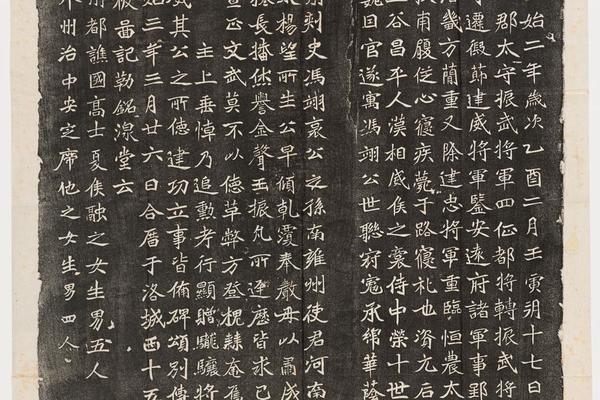 始二年歲次乙酉二月壬寅朔十七日
郡太守振武將軍四征都將轉振武將
遷假節建威將軍鑒安遠府諸軍事郢
幾方蘭重又除建忠將軍重臨恒農太
甫履從心寢疾薨于路寢礼也資元后
谷昌平人漢相威侯之裔侍中榮十世
魏因官遂寓馮翊公世聯冠冕承綿華蔭
刺史馮翊哀公之孫南雍州使君河南
楊望所生公早傾乾覆奉嚴母以肅成
長播休譽金聲玉振凡所逕歷皆求已
正文武莫不以德草弊方登槐棘奄焉
主上垂悼乃追勳考行顯贈龍驤將
其公之所德建功立事皆備碑頌別傳
始三年三月廿六日合厝于洛城西十五
啚記勒銘泉堂云
都譙國高士夏侯融之女生男五人
州治中安定席他之女生男四人